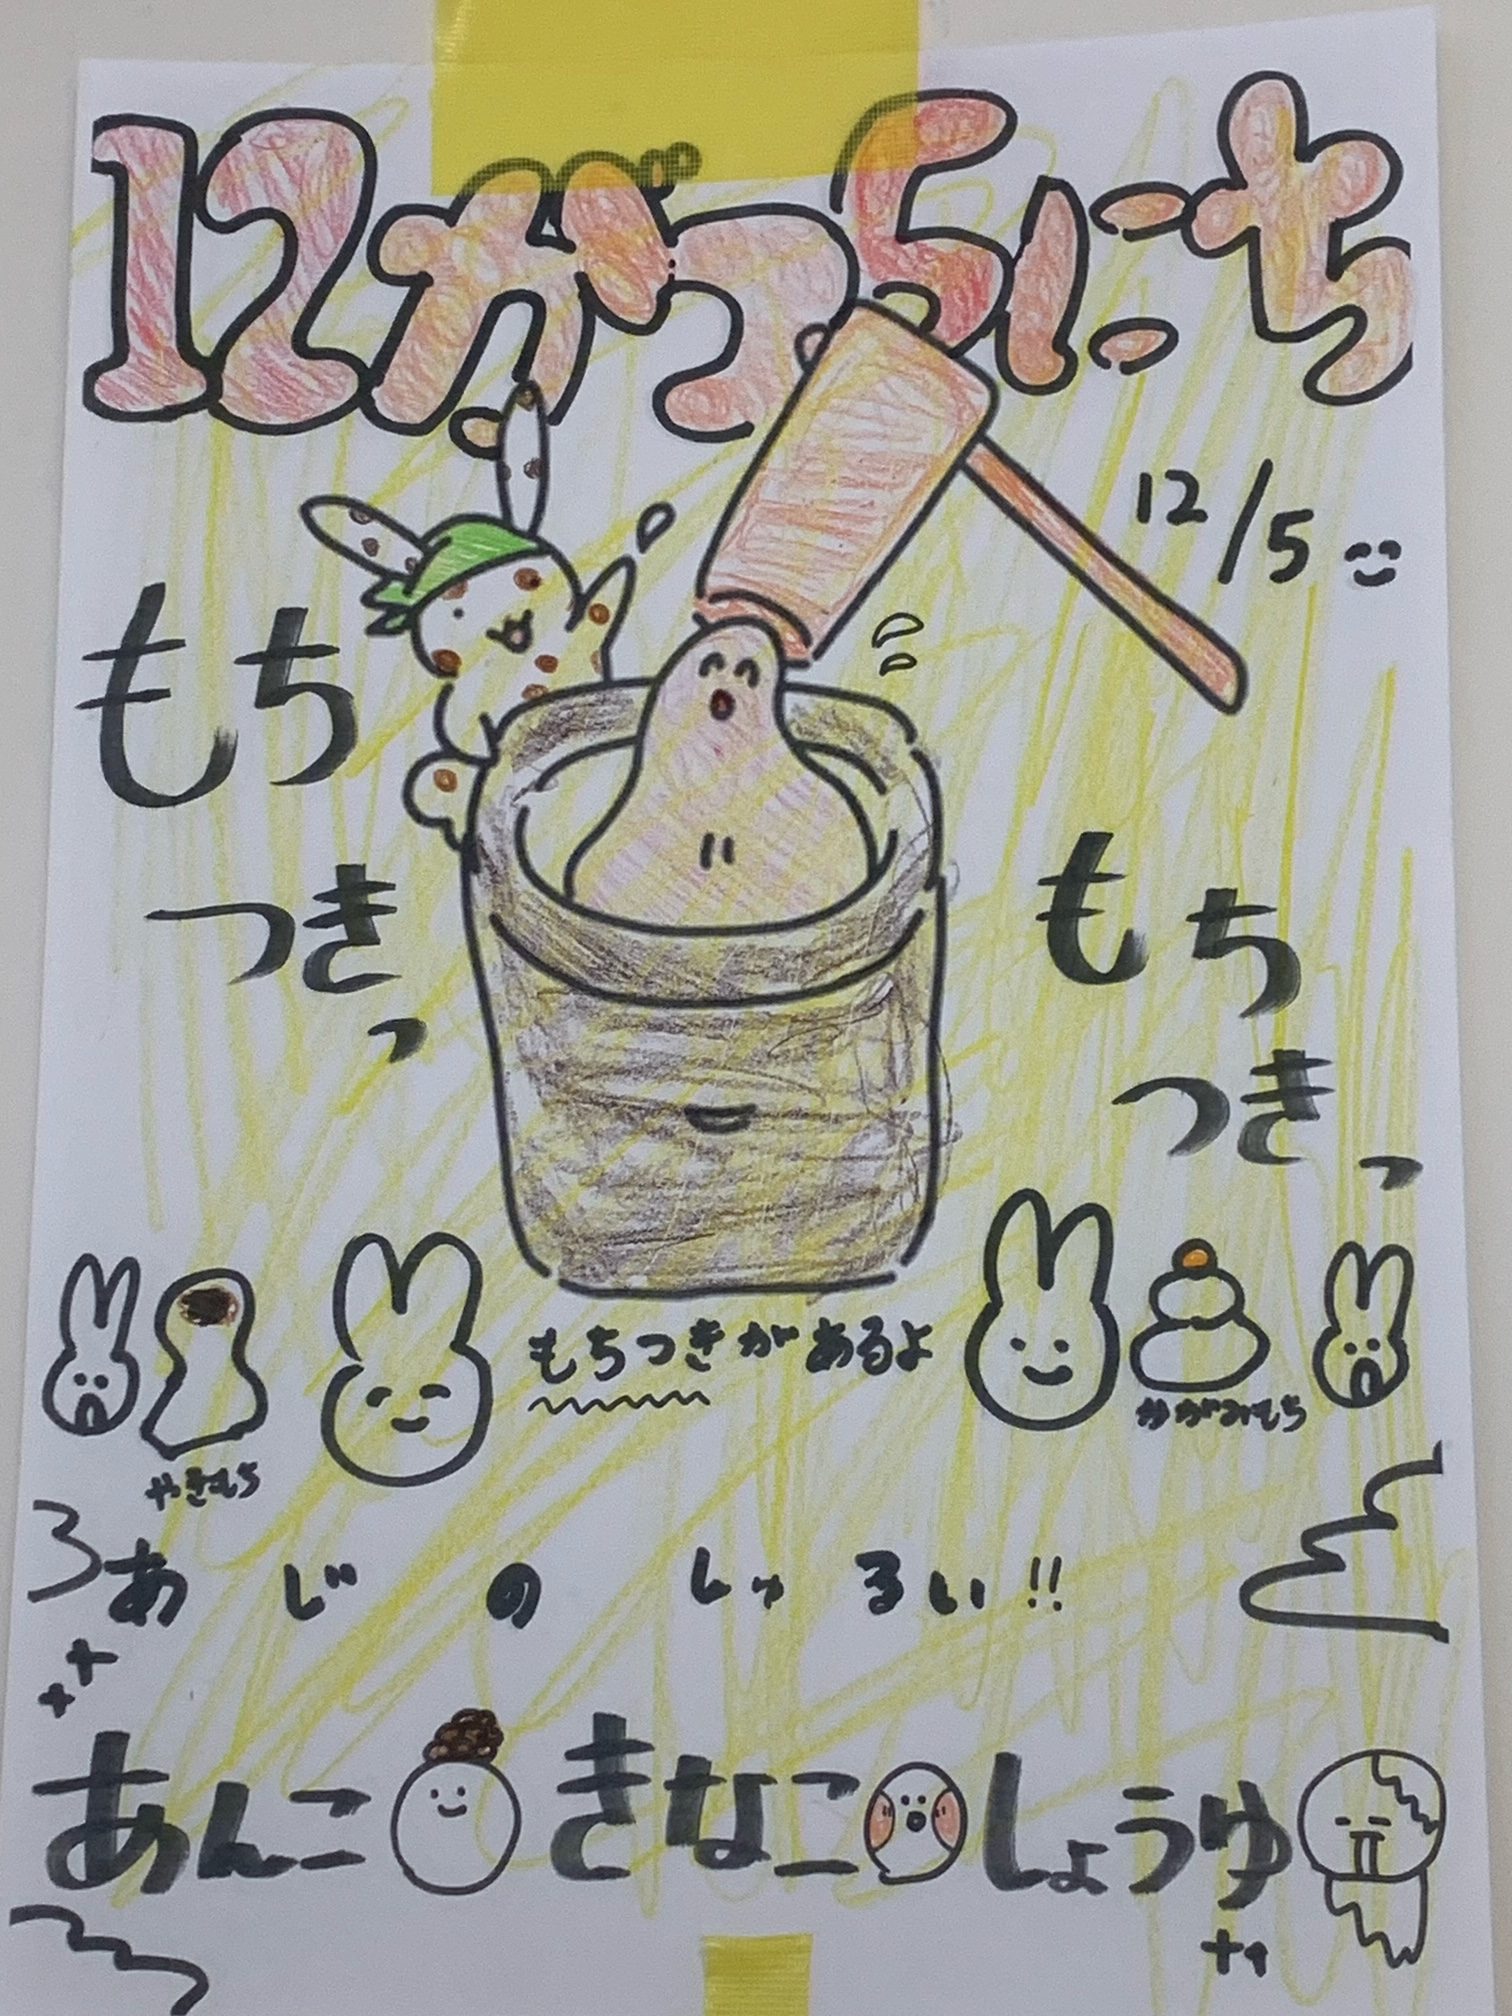 12がつ5にち
12/5
もち
つきっ
もち
つきっ
もちつきがあるよ
かがみもち
やきもち
あじのしゅるい!!
あんこ きなこ しょうゆ